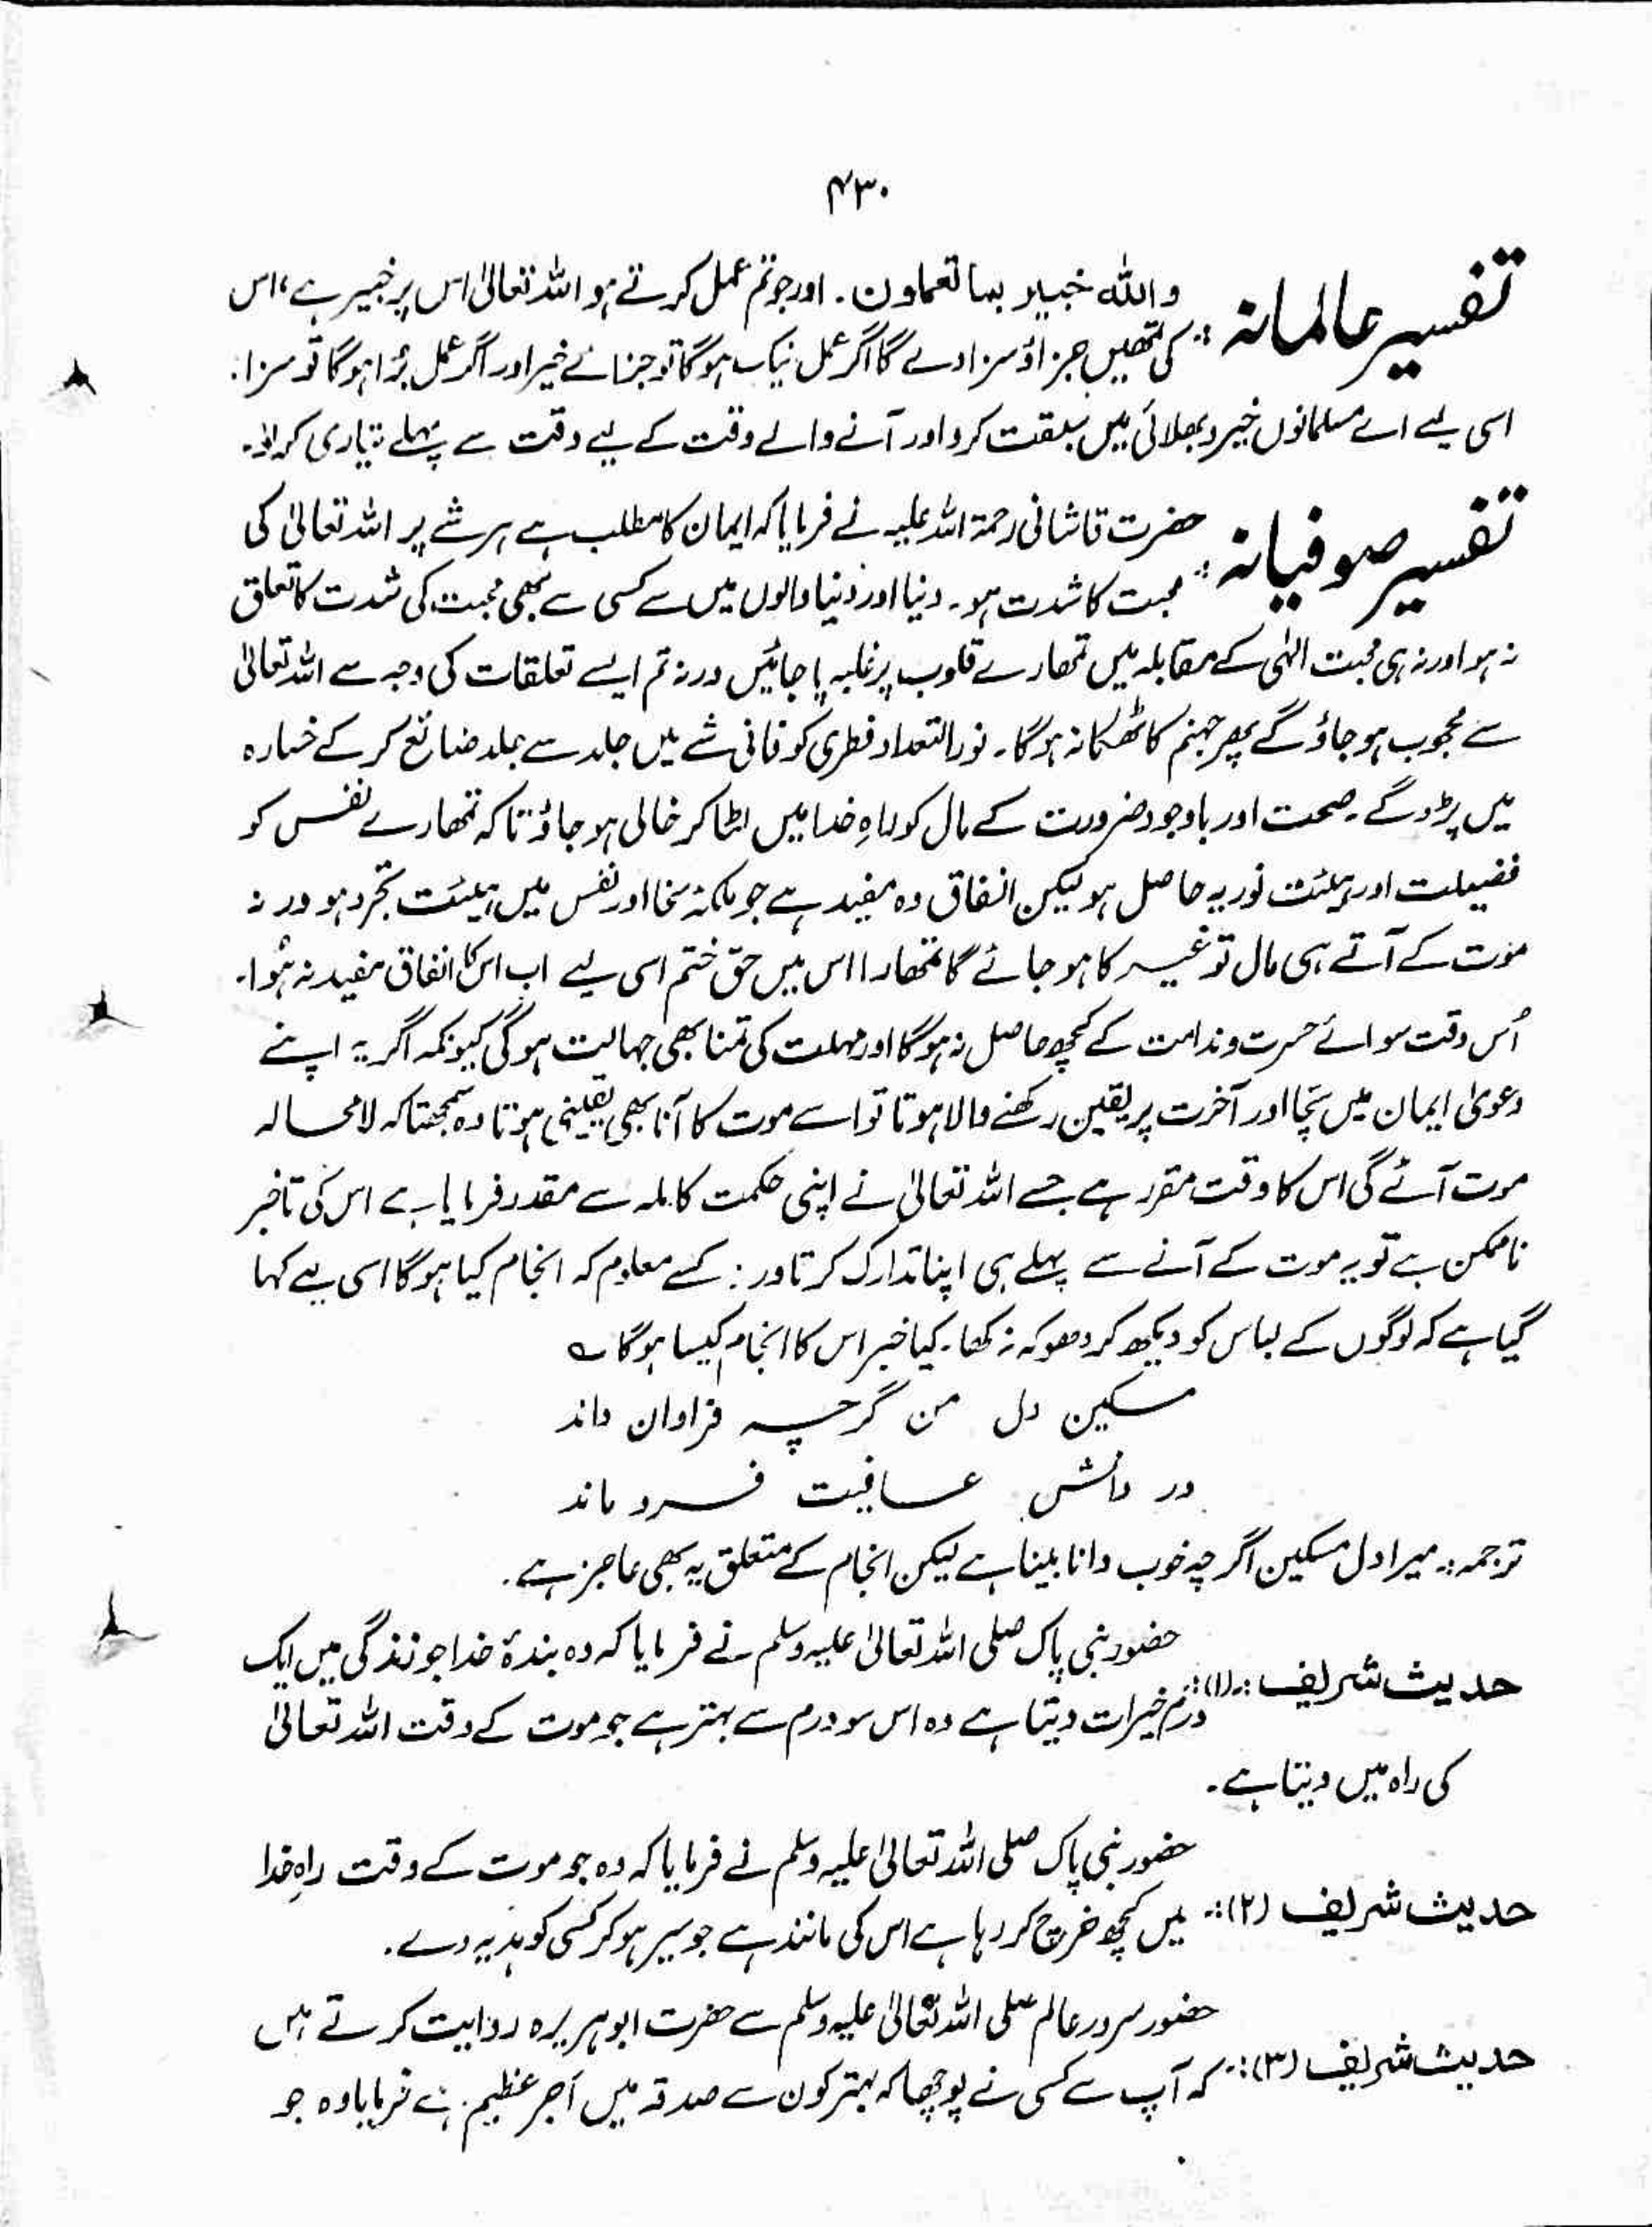 ۴۳۰
تفسیر عالمانہ :۔ واللہ خبیر بما تعملون۔ اور جو تم عمل کرتے ہو اللہ تعالیٰ اس پر خبیر ہے، اس
کی تمھیں جزا و سزا دے گا اگر عمل نیک ہو گا تو جزائے خیر اور اگر عمل بُرا ہو گا تو سزا۔
اسی لیے اے مسلمانوں خیر و بھلائی میں سبقت کرو اور آنے والے وقت کے لیے وقت سے پہلے تیاری کر لو۔
تفسیر صوفیانہ :۔ حضرت قاشانی رحمۃ اللہ علیہ نے فرمایا کہ ایمان کا مطلب ہے ہر شے پر اللہ تعالیٰ کی
محبت کا شدت ہو۔ دنیا اور دنیا والوں میں سے کسی سے بھی محبت کی شدت کا تعلق
نہ ہو اور نہ ہی محبت الٰہی کے مقابلہ میں تمھارے قلوب پر غلبہ پا جائیں ورنہ تم ایسے تعلقات کی وجہ سے اللہ تعالیٰ
سے محجوب ہو جاؤ گے پھر جہنم کا ٹھکانہ ہو گا۔ نور استعداد فطری کو فانی شے میں جلد سے جلد ضائع کر کے خسارہ
میں پڑو گے۔ صحت اور باوجود ضرورت کے مال کو راہِ خدا میں لٹا کر خالی ہو جاؤ تاکہ تمھارے نفس کو
فضیلت اور ہیئت نوریہ حاصل ہو لیکن انفاق وہ مفید ہے جو ملکۂ سخا اور نفس میں ہیئت تجرد ہو ورنہ
موت کے آتے ہی مال تو غیر کا ہو جائے گا تمھارا اس میں حق ختم اسی لیے اب اس کا انفاق مفید نہ ہُوا۔
اُس وقت سوائے حسرت و ندامت کے کچھ حاصل نہ ہو گا اور مہلت کی تمنا بھی جہالت ہو گی کیونکہ اگر یہ اپنے
دعویٰ ایمان میں سچا اور آخرت پر یقین رکھنے والا ہوتا تو اسے موت کا آنا بھی یقینی ہوتا وہ سمجھتا کہ لامحالہ
موت آئے گی اس کا وقت مقرر ہے جسے اللہ تعالیٰ نے اپنی حکمت کاملہ سے مقدر فرمایا ہے اس کی تاخیر
ناممکن ہے تو یہ موت کے آنے سے پہلے ہی اپنا تدارک کرتا ور: کسے معلوم کہ انجام کیا ہو گا اسی لیے کہا
گیا ہے کہ لوگوں کے لباس کو دیکھ کر دھوکہ نہ کھا۔ کیا خبر اس کا انجام کیسا ہو گا ؎
مسکین دل من گرچہ فراوان داند
در دانش عافیت فرو ماند
ترجمہ :۔ میرا دل مسکین اگرچہ خوب دانا بینا ہے لیکن انجام کے متعلق یہ بھی عاجز ہے۔
حدیث شریف :۔ (۱) :۔ حضور نبی پاک صلی اللہ تعالیٰ علیہ وسلم نے فرمایا کہ وہ بندۂ خدا جو زندگی میں ایک
درم خیرات دیتا ہے وہ اس سو درم سے بہتر ہے جو موت کے وقت اللہ تعالیٰ
کی راہ میں دیتا ہے۔
حدیث شریف (۲) :۔ حضور نبی پاک صلی اللہ تعالیٰ علیہ وسلم نے فرمایا کہ وہ جو موت کے وقت راہِ خدا
میں کچھ خرچ کر رہا ہے اس کی مانند ہے جو سیر ہو کر کسی کو ہدیہ دے۔
حدیث شریف (۳) :۔ حضور سرور عالم صلی اللہ تعالیٰ علیہ وسلم سے حضرت ابوہریرہ روایت کرتے ہیں
کہ آپ سے کسی نے پوچھا کہ بہتر کون سے صدقہ میں اَجر عظیم ہے فرمایا وہ جو